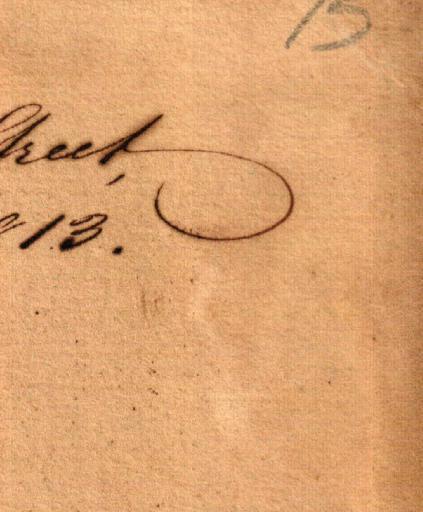 15
Street,
13.